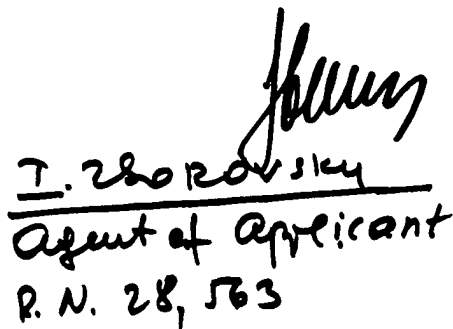 I. Zborovsky
Agent of Applicant
R. N. 28, 563